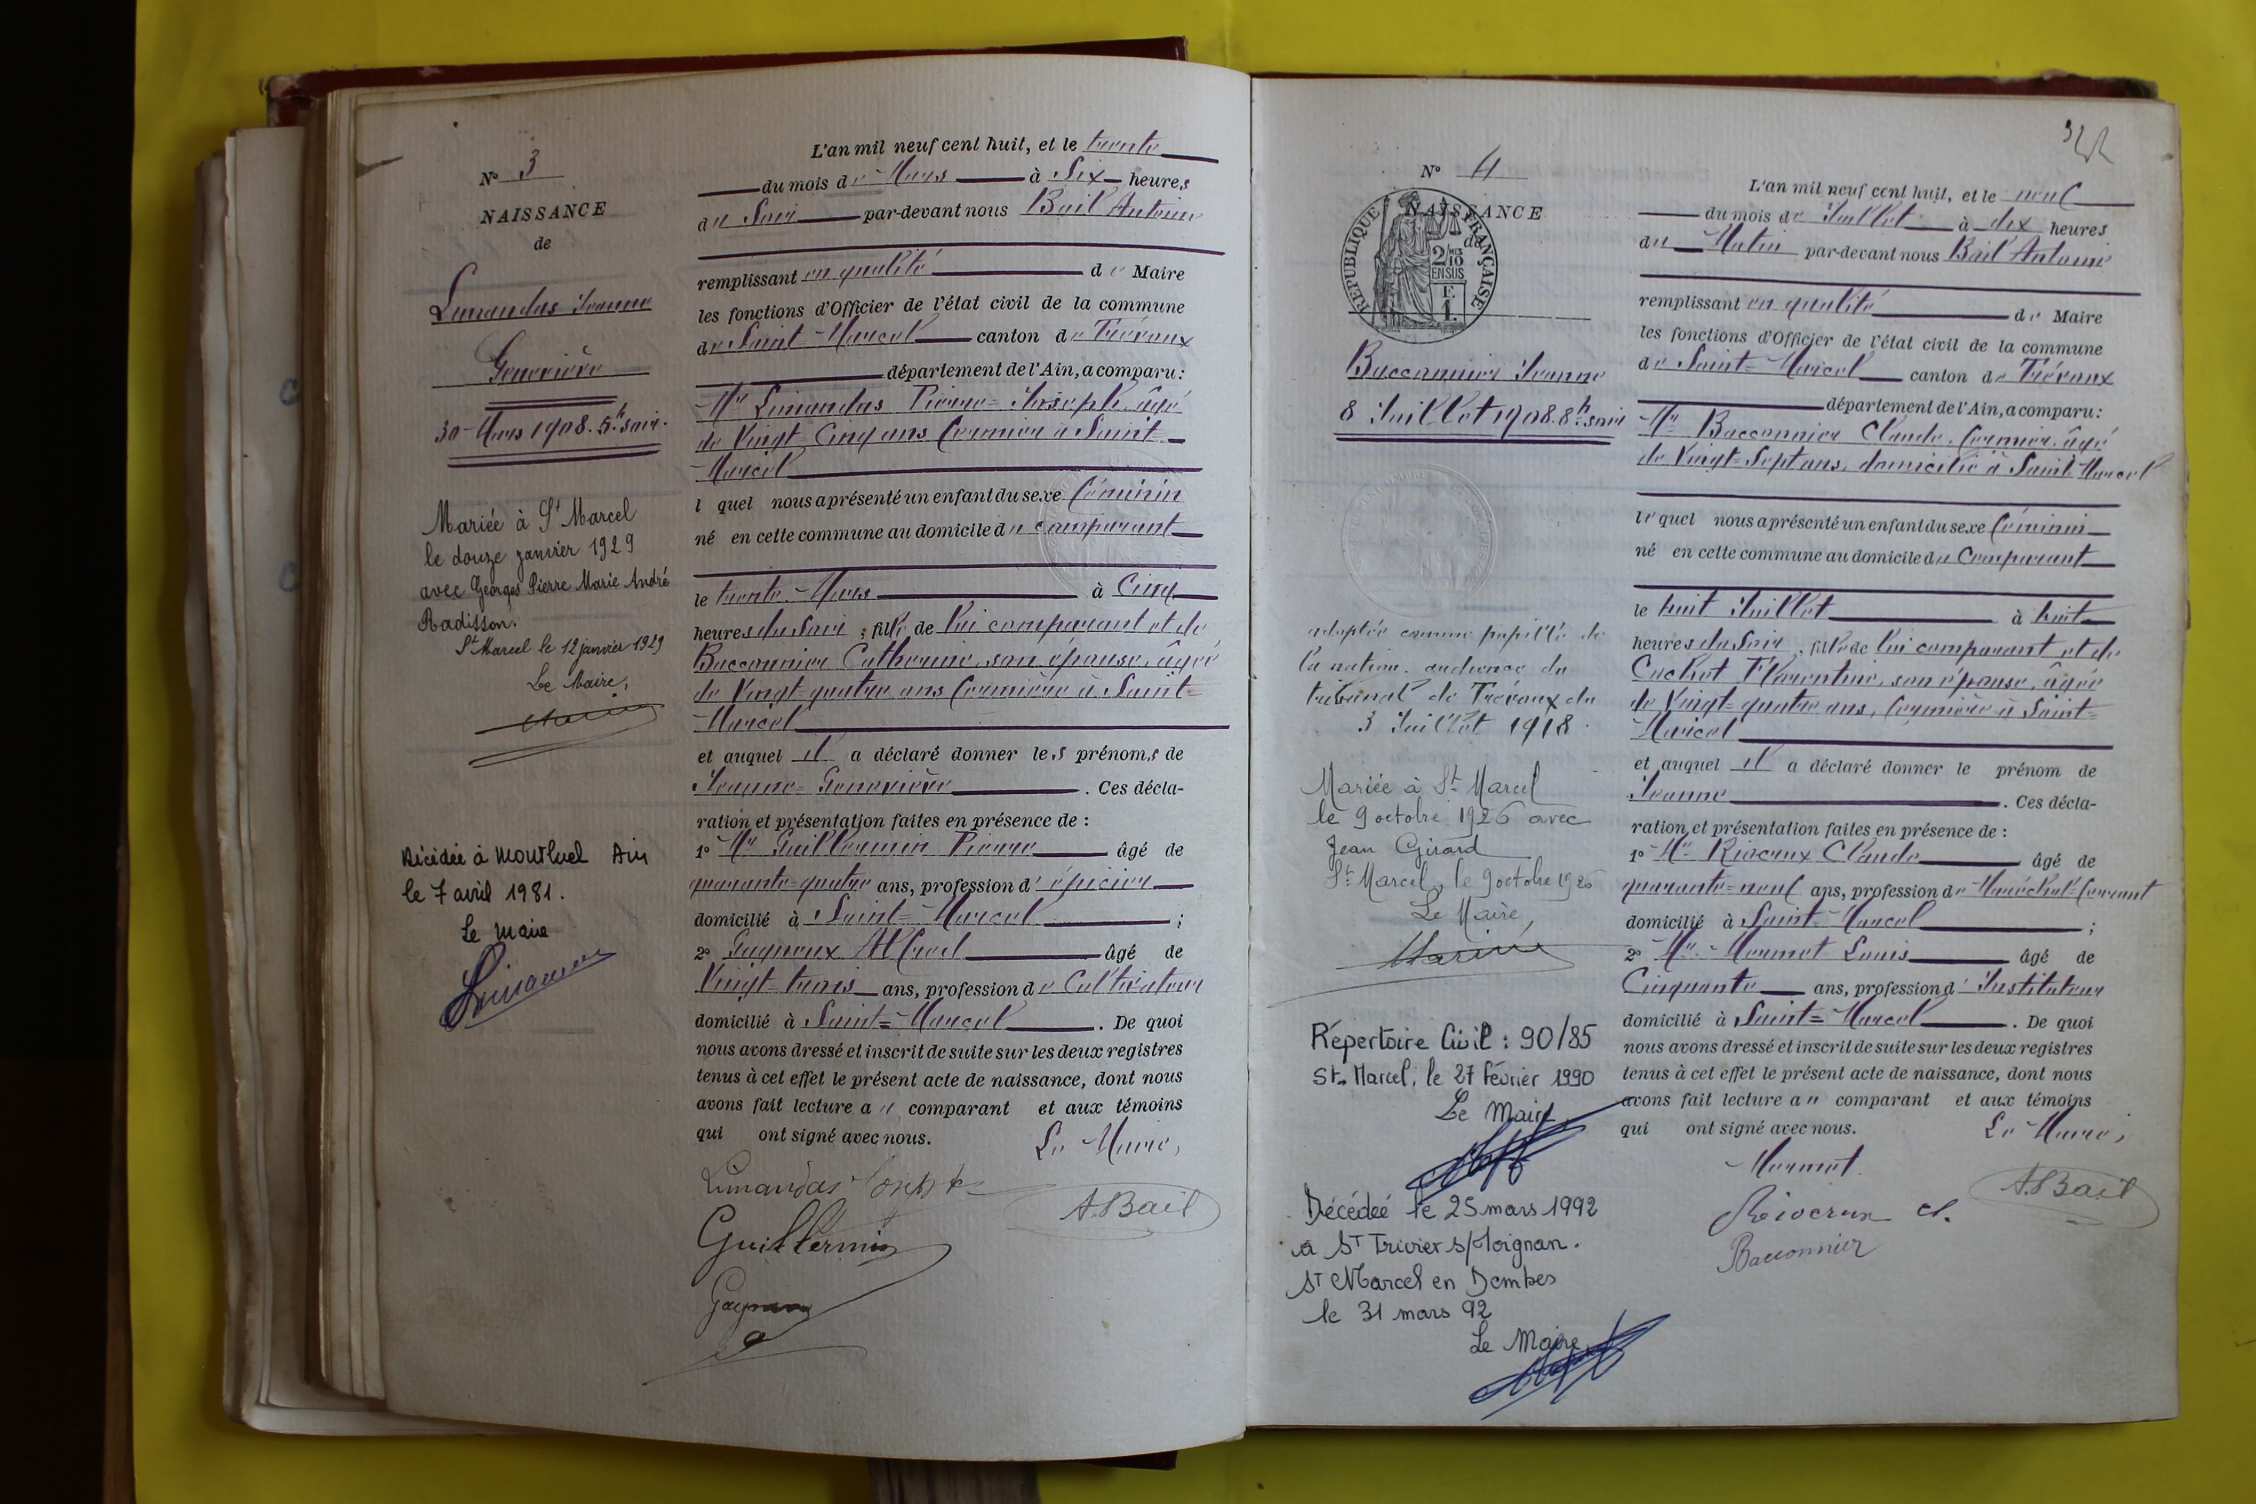 N° 3
NAISSANCE
de
Limandas Jeanne
Geneviève
30 Mars 1908. 5 h soir.
Mariée à St Marcel
le douze janvier 1929
avec Georges Pierre Marie André
Radisson.
St Marcel le 12 janvier 1929
Le Maire,
Décédée à Montluel Ain
le 7 avril 1981.
Le Maire
L'an mil neuf cent huit, et le trente
du mois de Mars à Six heures
du Soir par-devant nous Bail Antoine
remplissant en qualité de Maire
les fonctions d'Officier de l'état civil de la commune
de Saint-Marcel canton de Trévoux
département de l'Ain, a comparu:
Mr Limandas Pierre=Joseph, âgé
de Vingt-Cinq ans fermier à Saint-
Marcel
l quel nous a présenté un enfant du sexe féminin
né en cette commune au domicile du comparant
le trente Mars à Cinq
heures du Soir ; fille de lui comparant et de
Bacconnier Catherine, son épouse, âgée
de Vingt-quatre ans fermière à Saint-
Marcel
et auquel il a déclaré donner les prénoms de
Jeanne=Geneviève. Ces décla-
ration et présentation faites en présence de :
1° Mr Guillermin Pierre âgé de
quarante-quatre ans, profession d'épicier
domicilié à Saint=Marcel ;
2° Gagneux Alfred âgé de
Vingt-trois ans, profession de Cultivateur
domicilié à Saint=Marcel. De quoi
nous avons dressé et inscrit de suite sur les deux registres
tenus à cet effet le présent acte de naissance, dont nous
avons fait lecture au comparant et aux témoins
qui ont signé avec nous.
Le Maire,
Limandas Joseph
A. Bail
Guillermin
N° 4
NAISSANCE
de
REPUBLIQUE FRANÇAISE
2/10 EN SUS
E
1.
Bacconnier Jeanne
8 Juillet 1908. 8 h soir
adoptée comme pupille de
la nation. audience du
tribunal de Trévoux du
3 Juillet 1918.
Mariée à St Marcel
le 9 octobre 1926 avec
Jean Girard
St Marcel, le 9 octobre 1926
Le Maire,
Répertoire Civil : 90/85
St Marcel, le 27 février 1990
Le Maire
Décédée le 25 mars 1992
à ST Trivier s/Moignan.
ST Marcel en Dombes
le 31 mars 92
Le Maire
L'an mil neuf cent huit, et le neuf
du mois de Juillet à dix heures
du Matin par-devant nous Bail Antoine
remplissant en qualité de Maire
les fonctions d'Officier de l'état civil de la commune
de Saint=Marcel canton de Trévoux
département de l'Ain, a comparu:
Mr Bacconnier Claude, fermier, âgé
de Vingt=Sept ans, domicilié à Saint Marcel
le quel nous a présenté un enfant du sexe féminin
né en cette commune au domicile du Comparant
le huit Juillet à huit
heures du Soir, fille de lui comparant et de
Cochet Florentine, son épouse, âgée
de Vingt=quatre ans, fermière à Saint=
Marcel
et auquel il a déclaré donner le prénom de
Jeanne. Ces décla-
ration et présentation faites en présence de :
1° Mr Rioeux Claude âgé de
quarante=neuf ans, profession de Maréchal=ferrant
domicilié à Saint-Marcel ;
2° Mr Mermet Louis âgé de
Cinquante ans, profession d'Instituteur
domicilié à Saint=Marcel. De quoi
nous avons dressé et inscrit de suite sur les deux registres
tenus à cet effet le présent acte de naissance, dont nous
avons fait lecture au comparant et aux témoins
qui ont signé avec nous.
Le Maire,
Mermet
A. Bail
Bacconnier